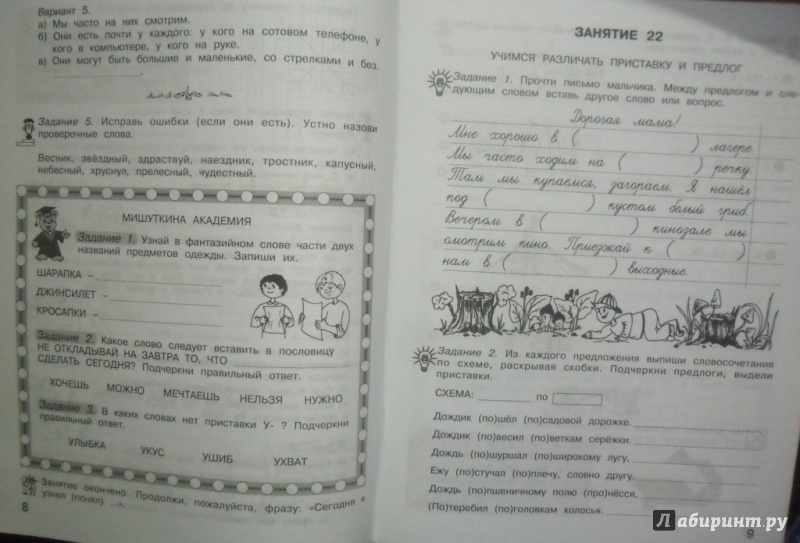 Вариант 5.
а) Мы часто на них смотрим.
б) Они есть почти у каждого: у кого на сотовом телефоне, у
кого в компьютере, у кого на руке.
в) Они могут быть большие и маленькие, со стрелками и без.
Задание 5. Исправь ошибки (если они есть). Устно назови
проверочные слова.
Весник, звёздный, здраствуй, наездник, тростник, капусный,
небесный, хруснул, прелесный, чудестный.
МИШУТКИНА АКАДЕМИЯ
Задание 1. Узнай в фантазийном слове части двух
названий предметов одежды. Запиши их.
ШАРАПКА –
ДЖИНСИЛЕТ –
КРОСАПКИ –
Задание 2. Какое слово следует вставить в пословицу
НЕ ОТКЛАДЫВАЙ НА ЗАВТРА ТО, ЧТО
СДЕЛАТЬ СЕГОДНЯ? Подчеркни правильный ответ.
ХОЧЕШЬ МОЖНО МЕЧТАЕШЬ НЕЛЬЗЯ НУЖНО
Задание 3. В каких словах нет приставки У- ? Подчеркни
правильный ответ.
УЛЫБКА УКУС УШИБ УХВАТ
Занятие окончено. Продолжи, пожалуйста, фразу: «Сегодня я
узнал (понял) ...».
8
ЗАНЯТИЕ 22
УЧИМСЯ РАЗЛИЧАТЬ ПРИСТАВКУ И ПРЕДЛОГ
Задание 1. Прочти письмо мальчика. Между предлогом и сле-
дующим словом вставь другое слово или вопрос.
Дорогая мама!
Мне хорошо в ( ) лагере.
Мы часто ходим на ( ) речку.
Там мы купаемся, загораем. Я нашёл
под ( ) кустом белый гриб.
Вечером в ( ) кинозале мы
смотрим кино. Приезжай к ( )
нам в ( ) выходные.
Задание 2. Из каждого предложения выпиши словосочетания
по схеме, раскрывая скобки. Подчеркни предлоги, выдели
приставки.
СХЕМА: по
Дождик (по)шёл (по)садовой дорожке.
Дождик (по)весил (по)веткам серёжки.
Дождь (по)шуршал (по)широкому лугу,
Ежу (по)стучал (по)плечу, словно другу.
Дождь (по)пшеничному полю (про)нёсся,
(По)теребил (по)головкам колосья.
9
Лабиринт.ру